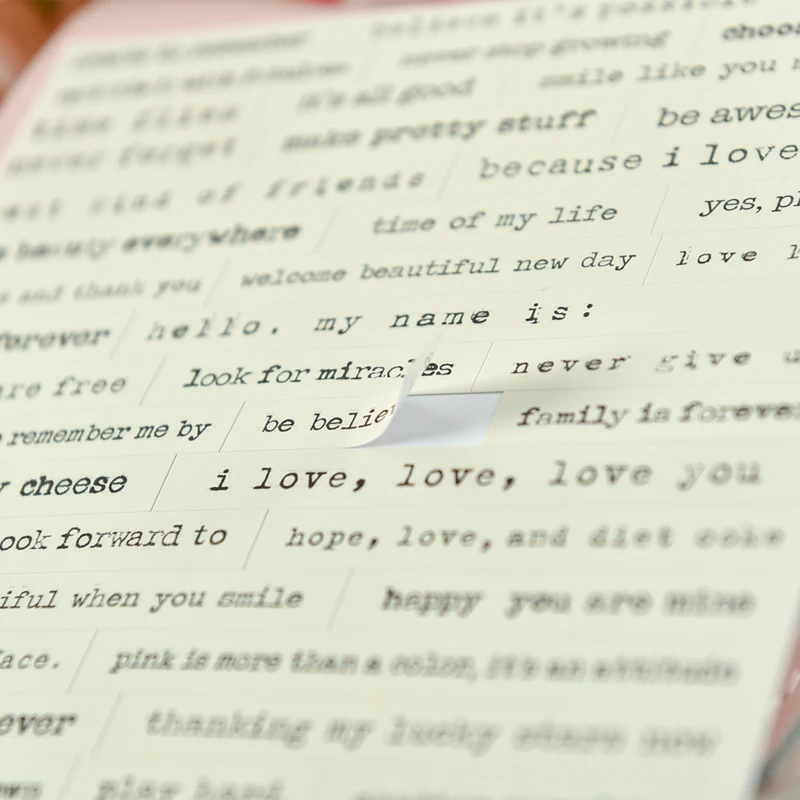 believe it's possible
never stop growing choos
it's all good smile like you m
time flies make pretty stuff be awes
never forget because i love
est kind of friends time of my life yes, pl
beauty everywhere welcome beautiful new day love l
s and thank you hello. my name is:
forever look for miracles never give u
are free be belie family is forever
remember me by i love, love, love you
y cheese hope, love, and diet coke
ook forward to happy you are mine
iful when you smile pink is more than a color, it's an attitude
face. thanking my lucky stars now
ever play hard
own